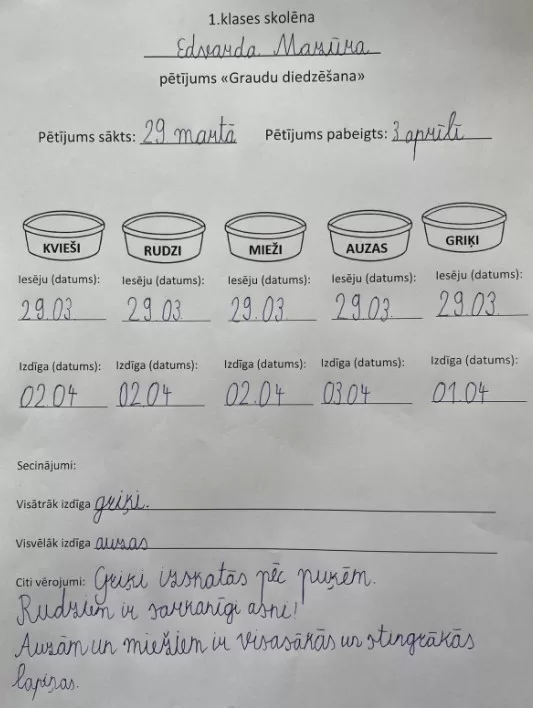 1.klases skolēna
Edvarda Mazūra
pētījums «Graudu diedzēšana»
Pētījums sākts: 29 martā Pētījums pabeigts: 3 aprīlī
KVIEŠI RUDZI MIEŽI AUZAS GRIĶI
Iesēju (datums): Iesēju (datums): Iesēju (datums): Iesēju (datums): Iesēju (datums):
29.03 29.03 29.03 29.03 29.03
Izdīga (datums): Izdīga (datums): Izdīga (datums): Izdīga (datums): Izdīga (datums):
02.04 02.04 02.04 03.04 01.04
Secinājumi:
Visātrāk izdīga griķi.
Visvēlāk izdīga auzas
Citi vērojumi: Griķi izskatās pēc puķēm.
Rudziem ir sarkanīgi asni!
Auzām un miežiem ir visasākās un stingrākās
lapiņas.